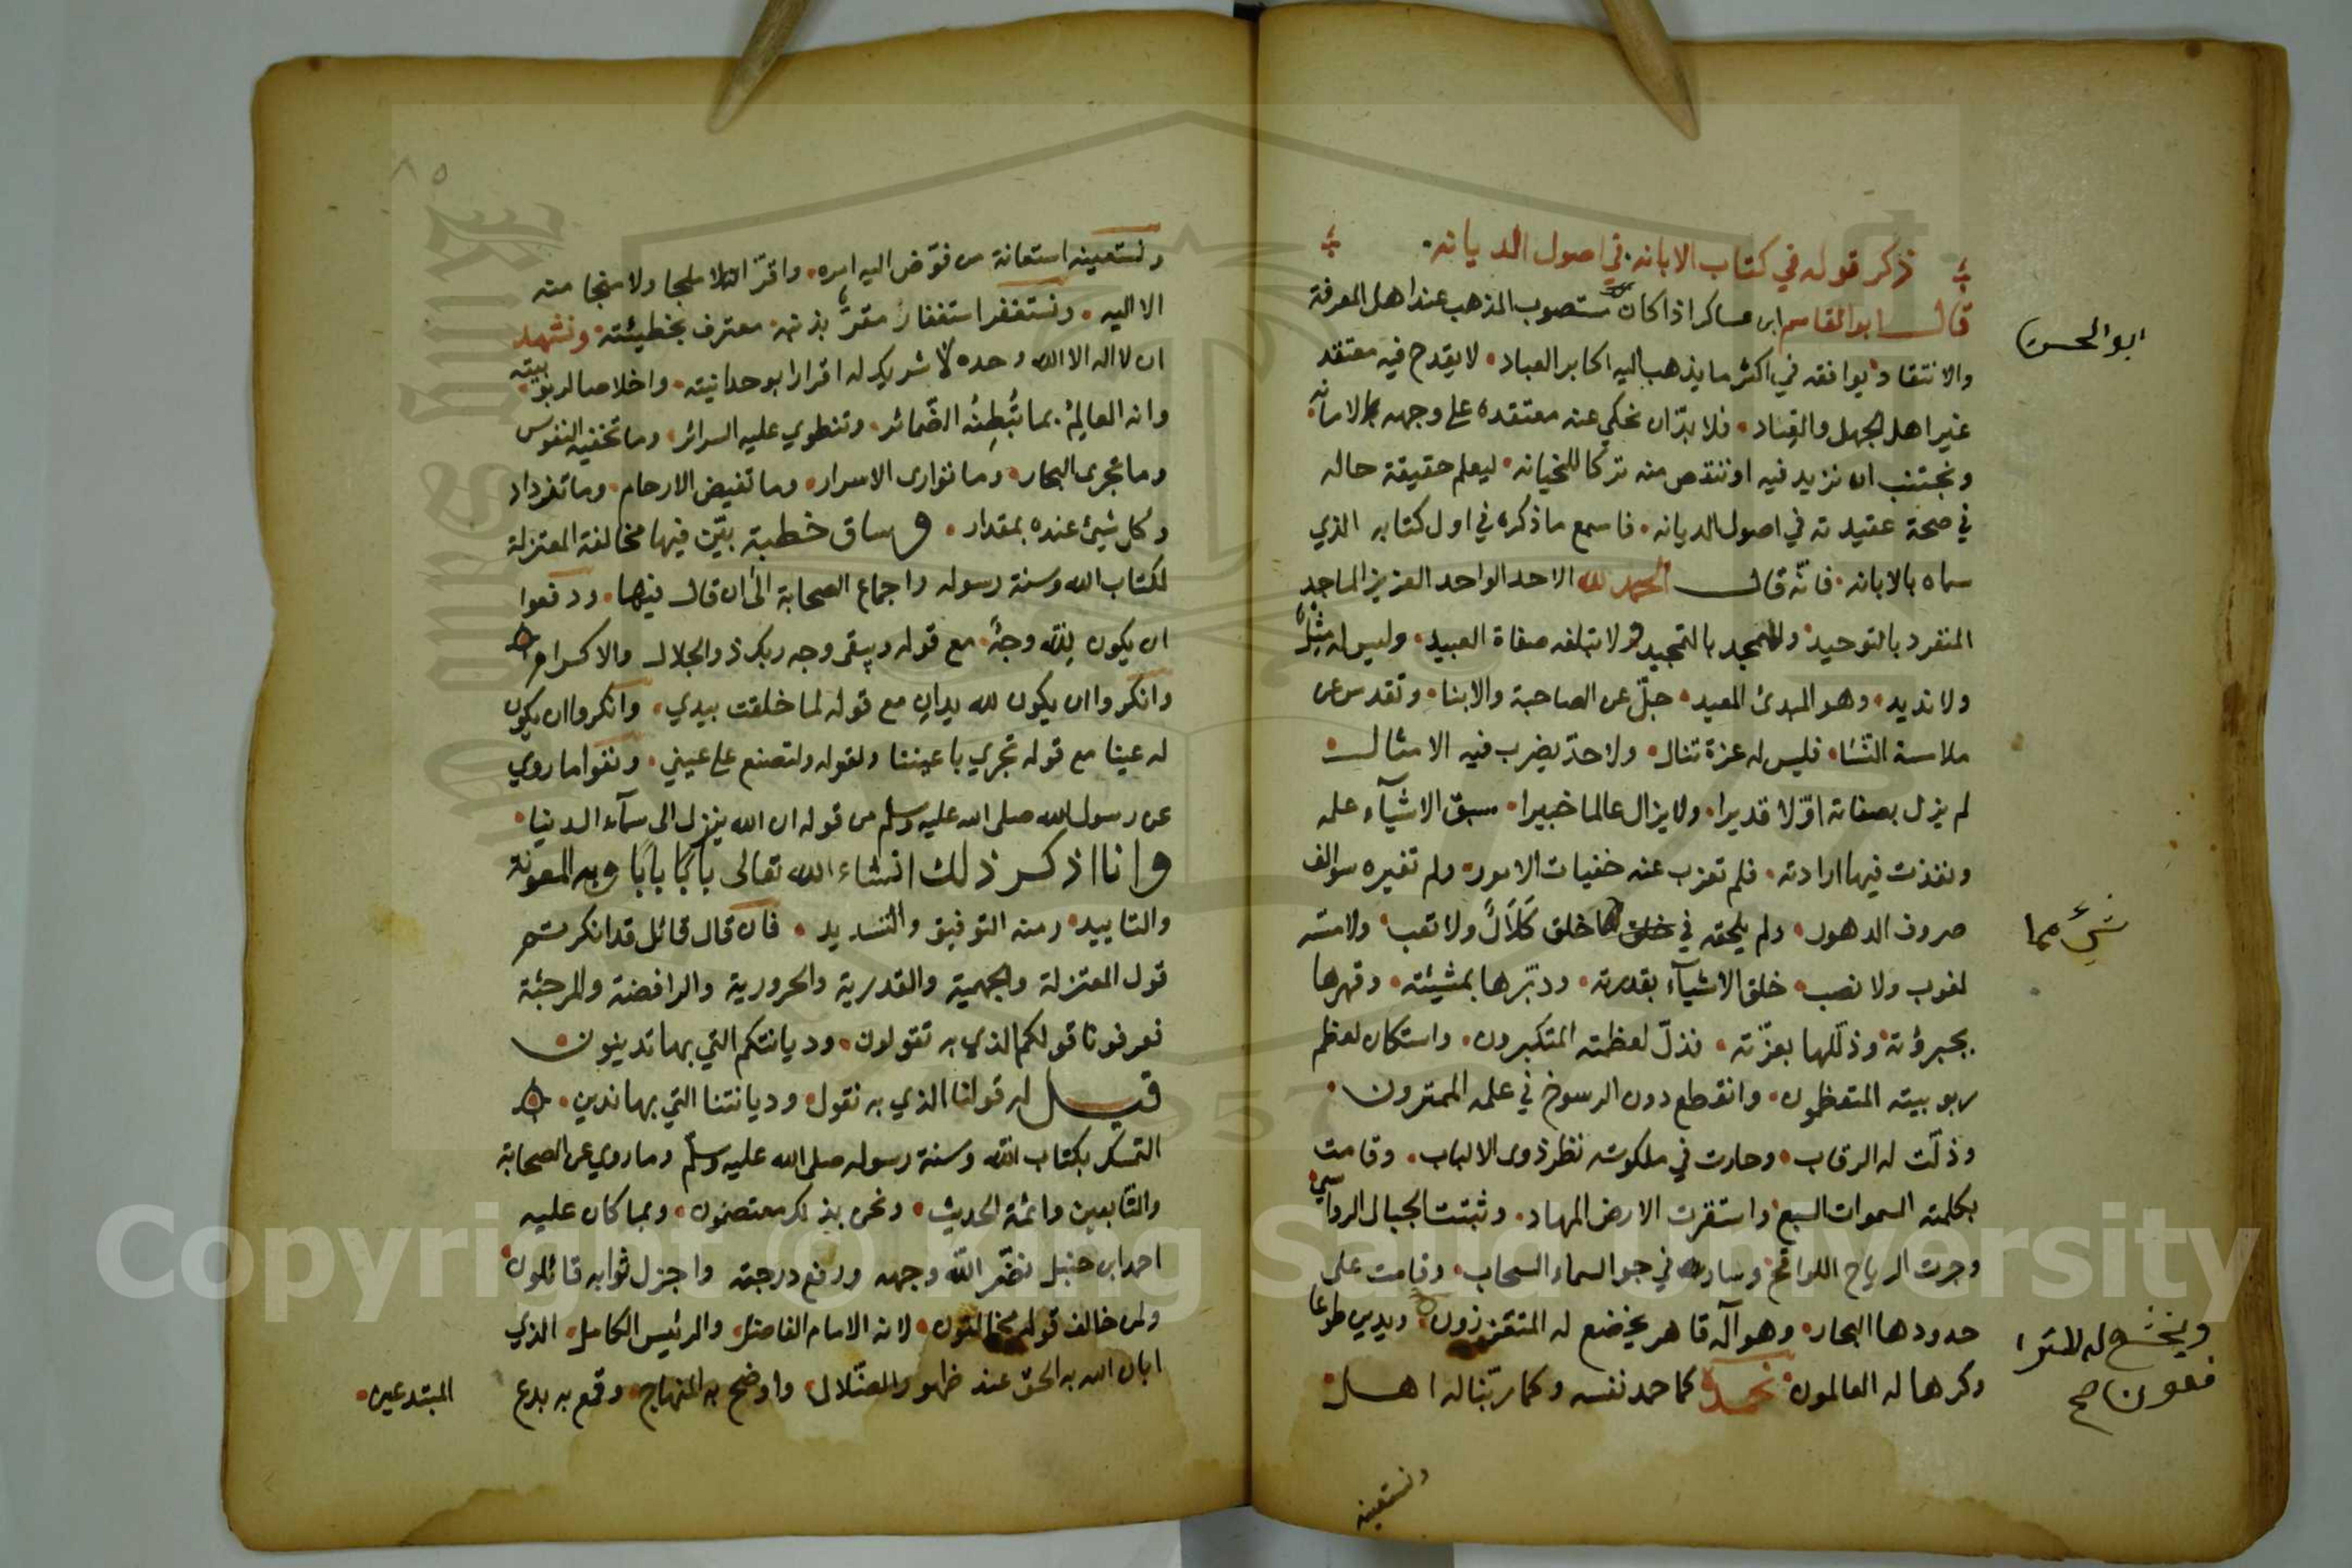 ذكر قوله في كتاب الابانه في اصول الديانه
قال ابو القاسم ابن عساكر اذا كان مستصوب المذهب عند اهل المعرفة
ابو الحسن
والانتقاد يوافقه في اكثر ما يذهب اليه اكابر العباد لا يقدح فيه معتقد
غير اهل الجهل والعناد فلا بدّ ان نحكي عنه معتقده على وجهه بالامانه
ونجتنب ان نزيد فيه او ننقص منه تركا للخيانه ليعلم حقيقة حاله
في صحة عقيدته في اصول الديانه فاسمع ما ذكره في اول كتابه الذي
سماه بالابانه فانّه قال الحمد لله الاحد الواحد العزيز الماجد
المتفرد بالتوحيد والمتمجد بالتمجيد ولا تبلغه صفاة العبيد وليس له مِثْلٌ
ولا نديد وهو المبدئ المعيد جلّ عن الصاحبة والابنا وتقدس عن
ملامسة النّسا فليس له عزة تنال ولا حدّ يضرب فيه الامثال
لم يزل بصفاته اوّلا قديرا ولا يزال عالما خبيرا سبق الاشيآء علمه
ونفذت فيها ارادته فلم تعزب عنه خفيات الامور ولم تغيره سوالف
صروف الدهور ولم يلحقه في خلق ما خلق كَلَالٌ ولا تعب ولا مسّه
شيْء مما
لغوب ولا نصب خلق الاشيآء بقدرته ودبّرها بمشيئته وقهرها
بجبروته وذلّلها بعزّته فذلّ لعظمته المتكبرون واستكان لعظم
ربوبيته المتعظمون وانقطع دون الرسوخ في علمه الممترون
وذلّت له الرقاب وحارت في ملكوته نظر ذوى الالباب وقامت
بكلمته السموات السبع واستقرت الارض المهاد وثبتت الجبال الرواسي
وجرت الرياح اللواقح وسار في جو السماء السحاب وقامت على
حدودها البحار وهو آله قاهر يخضع له المتعززون ويدين طوعا
ويخشع له المترا
فعون صح
وكرها له العالمون نحمده كما حمد نفسه وكما ربّنا له اهل
ونستعينه
ونستعينه استعانة من فوّض اليه امره واقرّ انه لا ملجا ولا منجا منه
الا اليه ونستغفر استغفار مقرٍّ بذنبه معترف بخطيئته ونشهد
ان لا اله الا الله وحده لا شريك له اقرارا بوحدانيته واخلاصا لربوبيته
وانه العالِمُ بما تُبْطِنُه الضّمائر وتنطوي عليه السرائر وما تخفيه النفوس
وما تجرى البحار وما توارى الاسرار وما تغيض الارحام وما تزداد
وكل شيئ عنده بمقدار وساق خطبة بيّن فيها مخالفة المعتزلة
لكتاب الله وسنة رسوله واجماع الصحابة الى ان قال فيها ودفعوا
ان يكون لله وجهٌ مع قوله ويبقى وجه ربك ذو الجلال والاكرام
وانكروا ان يكون لله يدان مع قوله لما خلقت بيدي وانكروا ان يكون
له عينا مع قوله تجري باعيننا ولقوله ولتصنع على عيني ونفوا ما روي
عن رسول الله صلى الله عليه وسلم من قوله ان الله ينزل الى سمآء الدنيا
وانا اذكر ذلك انشاء الله تعالى بابًا بابًا وبه المعونة
والتاييد ومنه التوفيق والتسديد فان قال قائل قد انكرتم
قول المعتزلة والجهمية والقدرية والحرورية والرافضة والمرجئة
فعرفونا قولكم الذي به تقولون وديانتكم التي بها تدينون
قيل له قولنا الذي به نقول وديانتنا التي بها ندين
التمسك بكتاب الله وسنة رسوله صلى الله عليه وسلّم وما روي عن الصحابة
والتّابعين وائمة الحديث ونحن بذلك معتصمون وبما كان عليه
احمد ابن حنبل نضّر الله وجهه ورفع درجته واجزل ثوابه قائلون
ولمن خالف قوله مخالفون لانه الامام الفاضل والرئيس الكامل الذي
ابان الله به الحق عند ظهور الضّلال واوضح به المنهاج وقمع به بدع
المبتدعين
Copyright © King Saud University